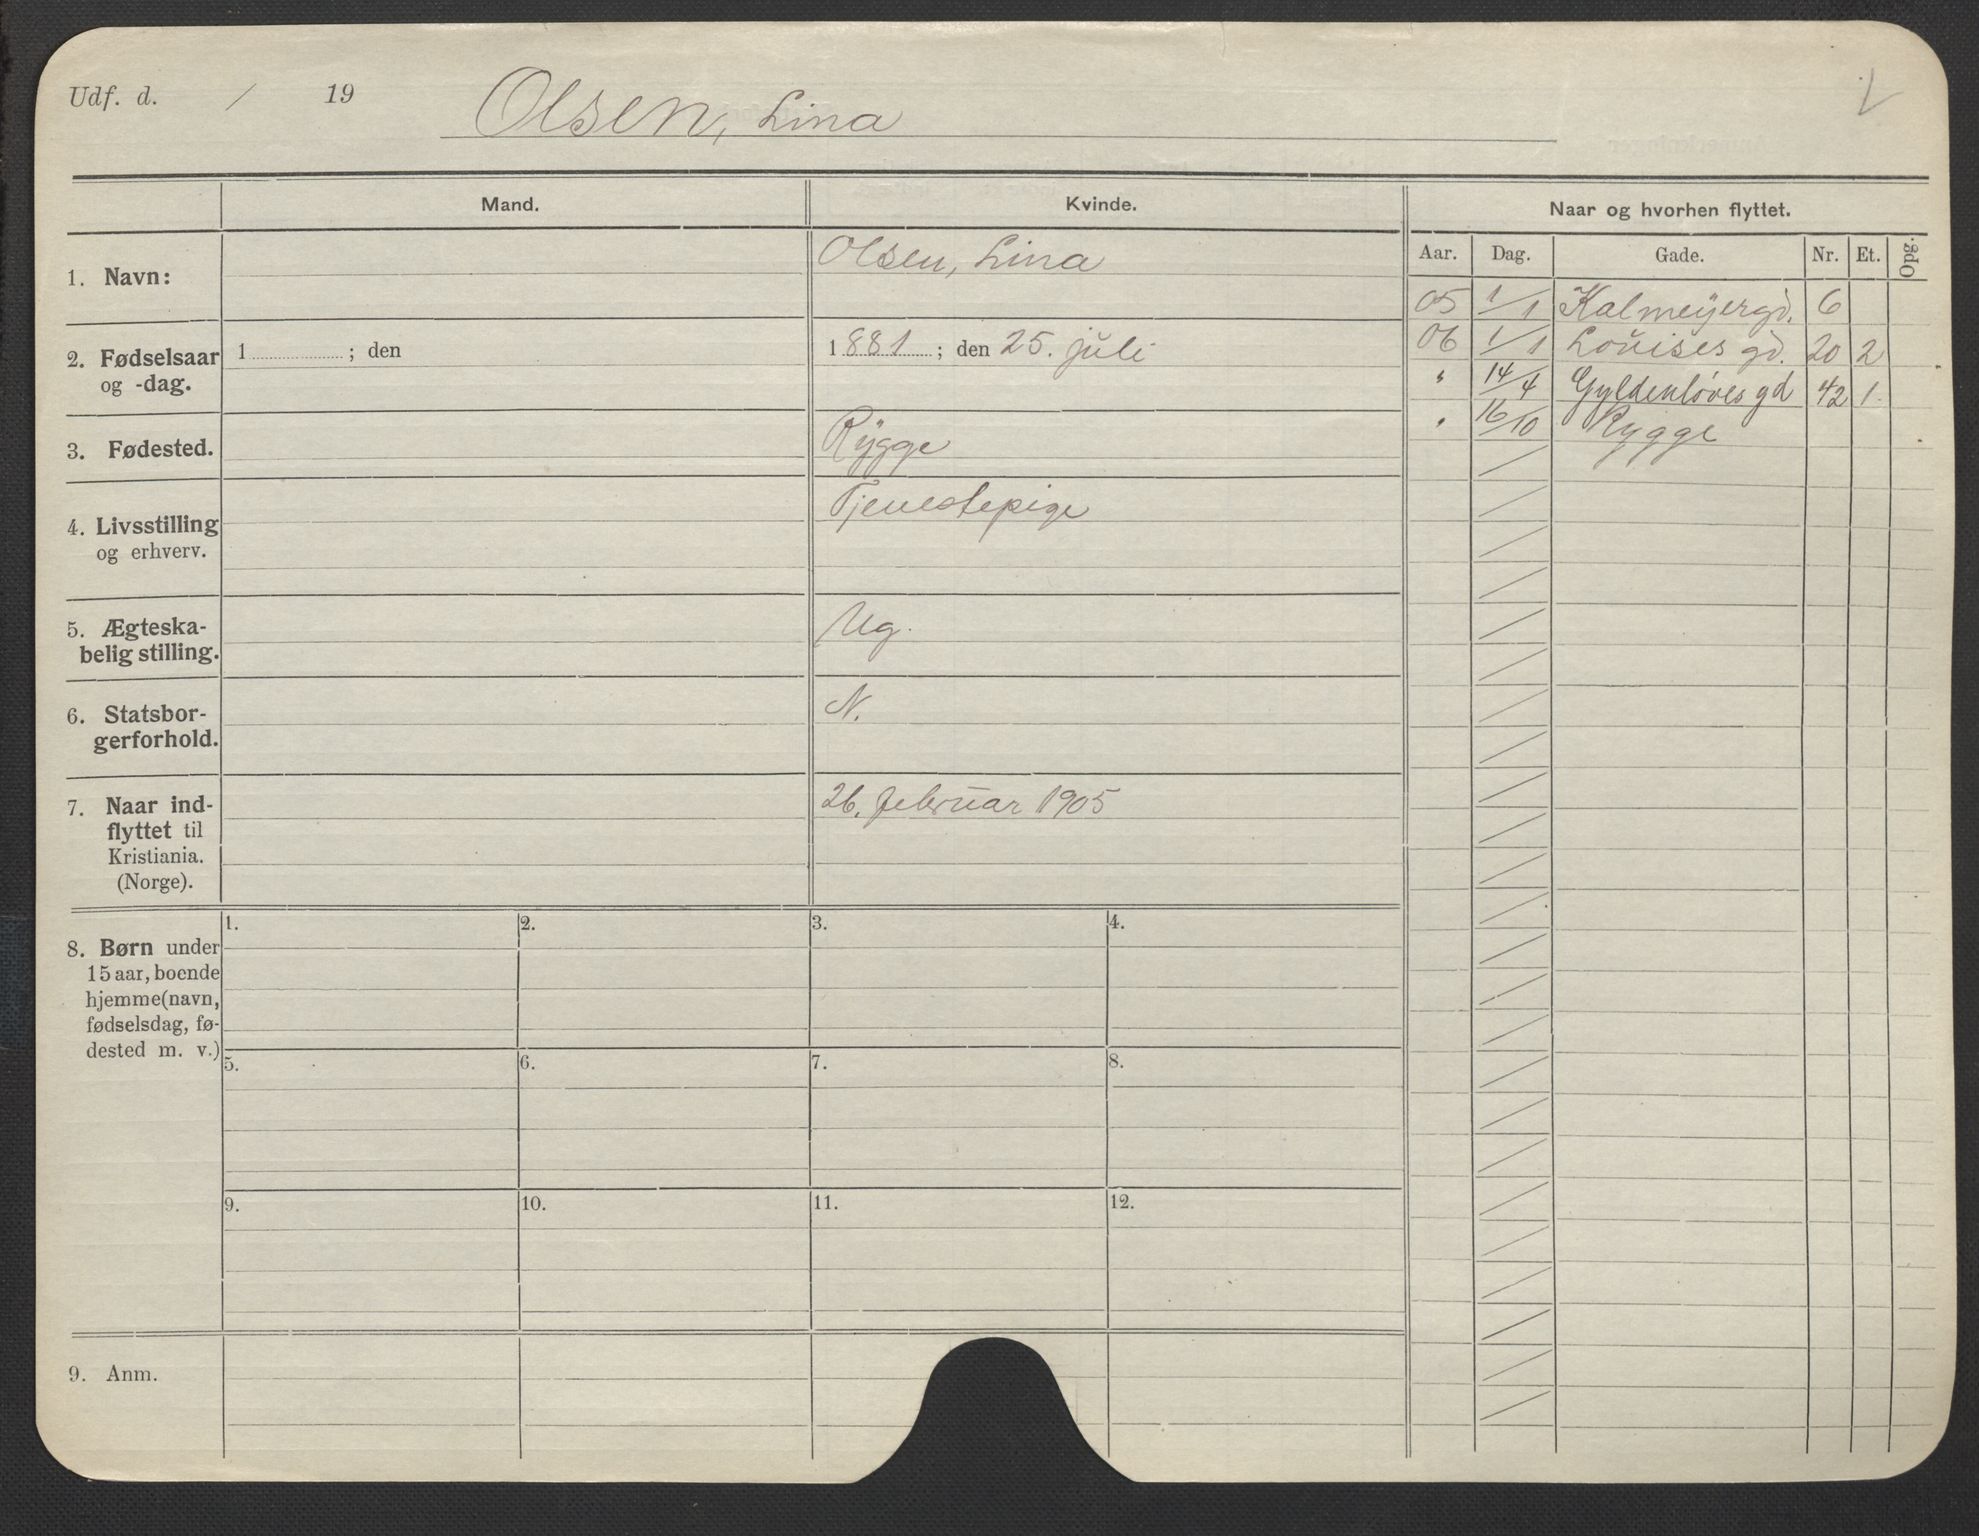 Udf. d. / 19
Olsen, Lina
Mand.
Kvinde.
Naar og hvorhen flyttet.
Aar. Dag. Gade. Nr. Et. Opg.
1. Navn:
Olsen, Lina
2. Fødselsaar
og -dag.
1 ; den
1881 ; den 25. juli
3. Fødested.
Rygge
4. Livsstilling
og erhverv.
Tjenestepige
5. Ægteska-
belig stilling.
Ug.
6. Statsbor-
gerforhold.
N.
7. Naar ind-
flyttet til
Kristiania.
(Norge).
26. februar 1905
05 1/1 Kalmeyergd. 6
06 1/1 Louises gd. 20 2
" 14/4 Gyldenløves gd 42 1.
" 16/10 Rygge
8. Børn under
15 aar, boende
hjemme (navn,
fødselsdag, fø-
dested m. v.)
1. 2. 3. 4.
5. 6. 7. 8.
9. 10. 11. 12.
9. Anm.